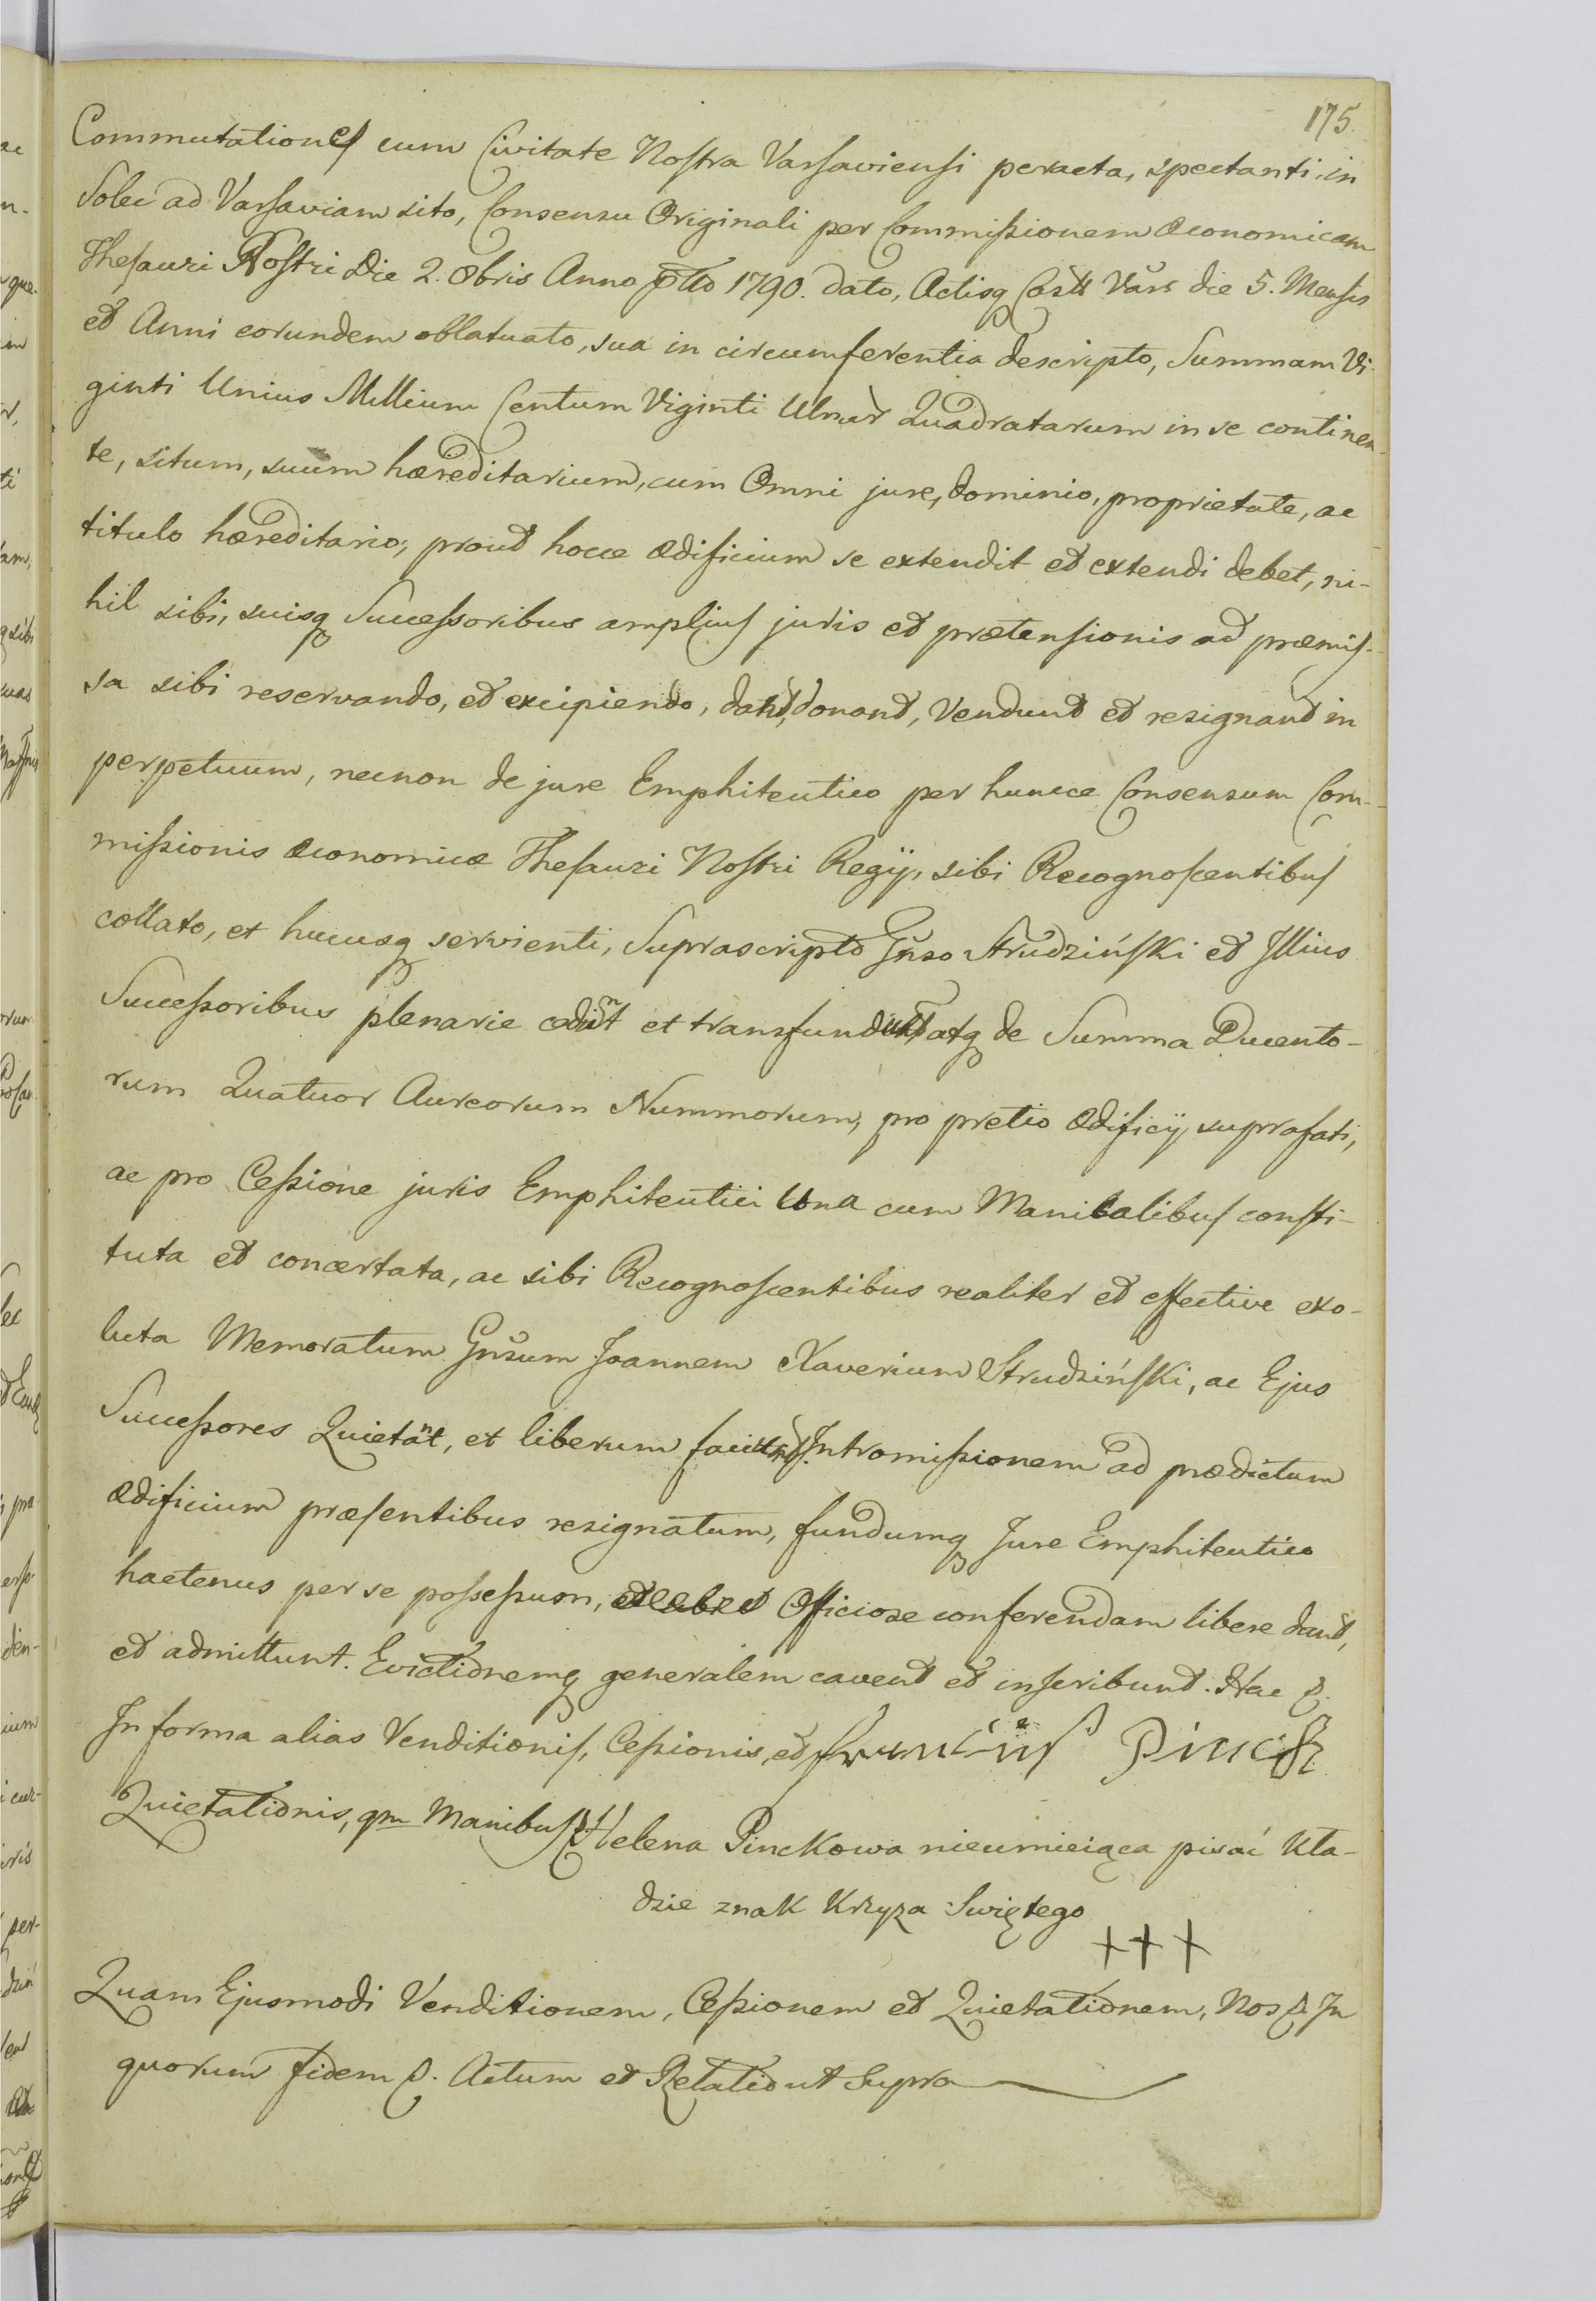 175.
Commutationes cum Civitate Nostra Varsaviensi peracta, spectanti, in
Solec ad Varsaviam sito, Consensu Originali per Commissionem œconomicam
Thesauri Nostri Die 2. 8bris Anno pñtto 1790. dato, Actisq Castt Vars die 5. Mensis
et Anni eorundem oblatuato, sua in circumferentia descripto, Summam Vi-
ginti Unius Millium Centum Viginti Ulnar Quadratarum in se continen-
te, situm, suum hæreditarium, cum Omni jure, dominio, proprietate, ac
titulo hæreditario, prout hocce ædificium se extendit et extendi debet, ni-
hil sibi, suisq Successoribus amplius juris et prætensionis ad præmis-
sa sibi reservando, et excipiendo, dant, donant, Vendunt et resignant in
perpetuum, necnon de jure Emphiteutico per huncce Consensum Com-
missionis œconomicæ Thesauri Nostri Regij, sibi Recognoscentibus
collato, et hucusq servienti, Suprascripto Gñso Strudziński et Illius
Successoribus plenarie cedunt et transfundunt atq de Summa Ducento-
rum Quatuor Aureorum Nummorum, pro pretio Ædificij suprafati,
ac pro Cessione juris Emphiteutici Una cum Manibalibus consti-
tuta et concertata, ac sibi Recognoscentibus realiter et effective exo-
luta Memoratum Gñsum Joannem Xaverium Strudziński, ac Ejus
Successores Quietant, et liberum faciunt. Intromissionem ad prædictum
Ædificium præsentibus resignatum, fundumq Jure Emphiteutico
hactenus per se possessum, Officiose conferendam libere dant,
et admittunt. Evictionemq generalem cavent et inscribunt. Hac p.
In forma alias Venditionis, Cessionis, et Pinck
Quietationis, qm Manibus Helena Pinckowa nieumieiąca pisać kła-
dzie znak Krzyza Swiętego
+++
Quam Ejusmodi Venditionem, Cessionem et Quietationem, Nos p. In
quorum fidem p. Actum et Relatio ut Supra